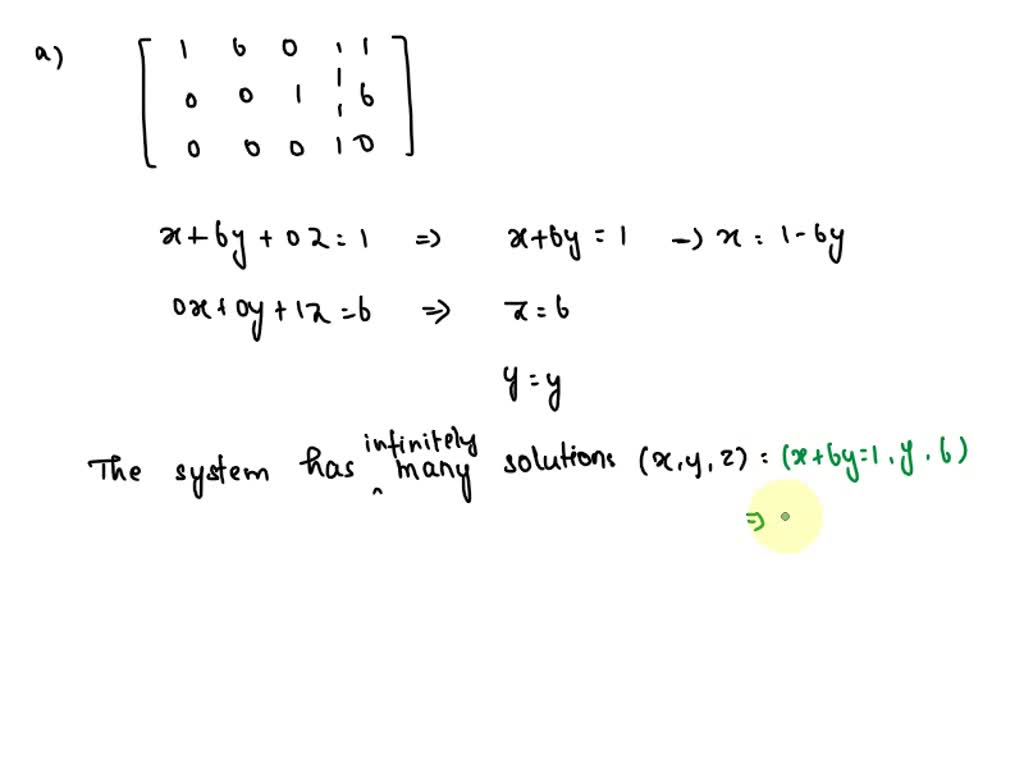 a)
1 6 0 1
0 0 1 6
0 0 0 0
x+6y+0z=1 => x+6y=1 -> x=1-6y
0x+0y+1z=6 => z=6
y=y
The system has infinitely many solutions (x,y,z): (x+6y=1, y, 6)
=>